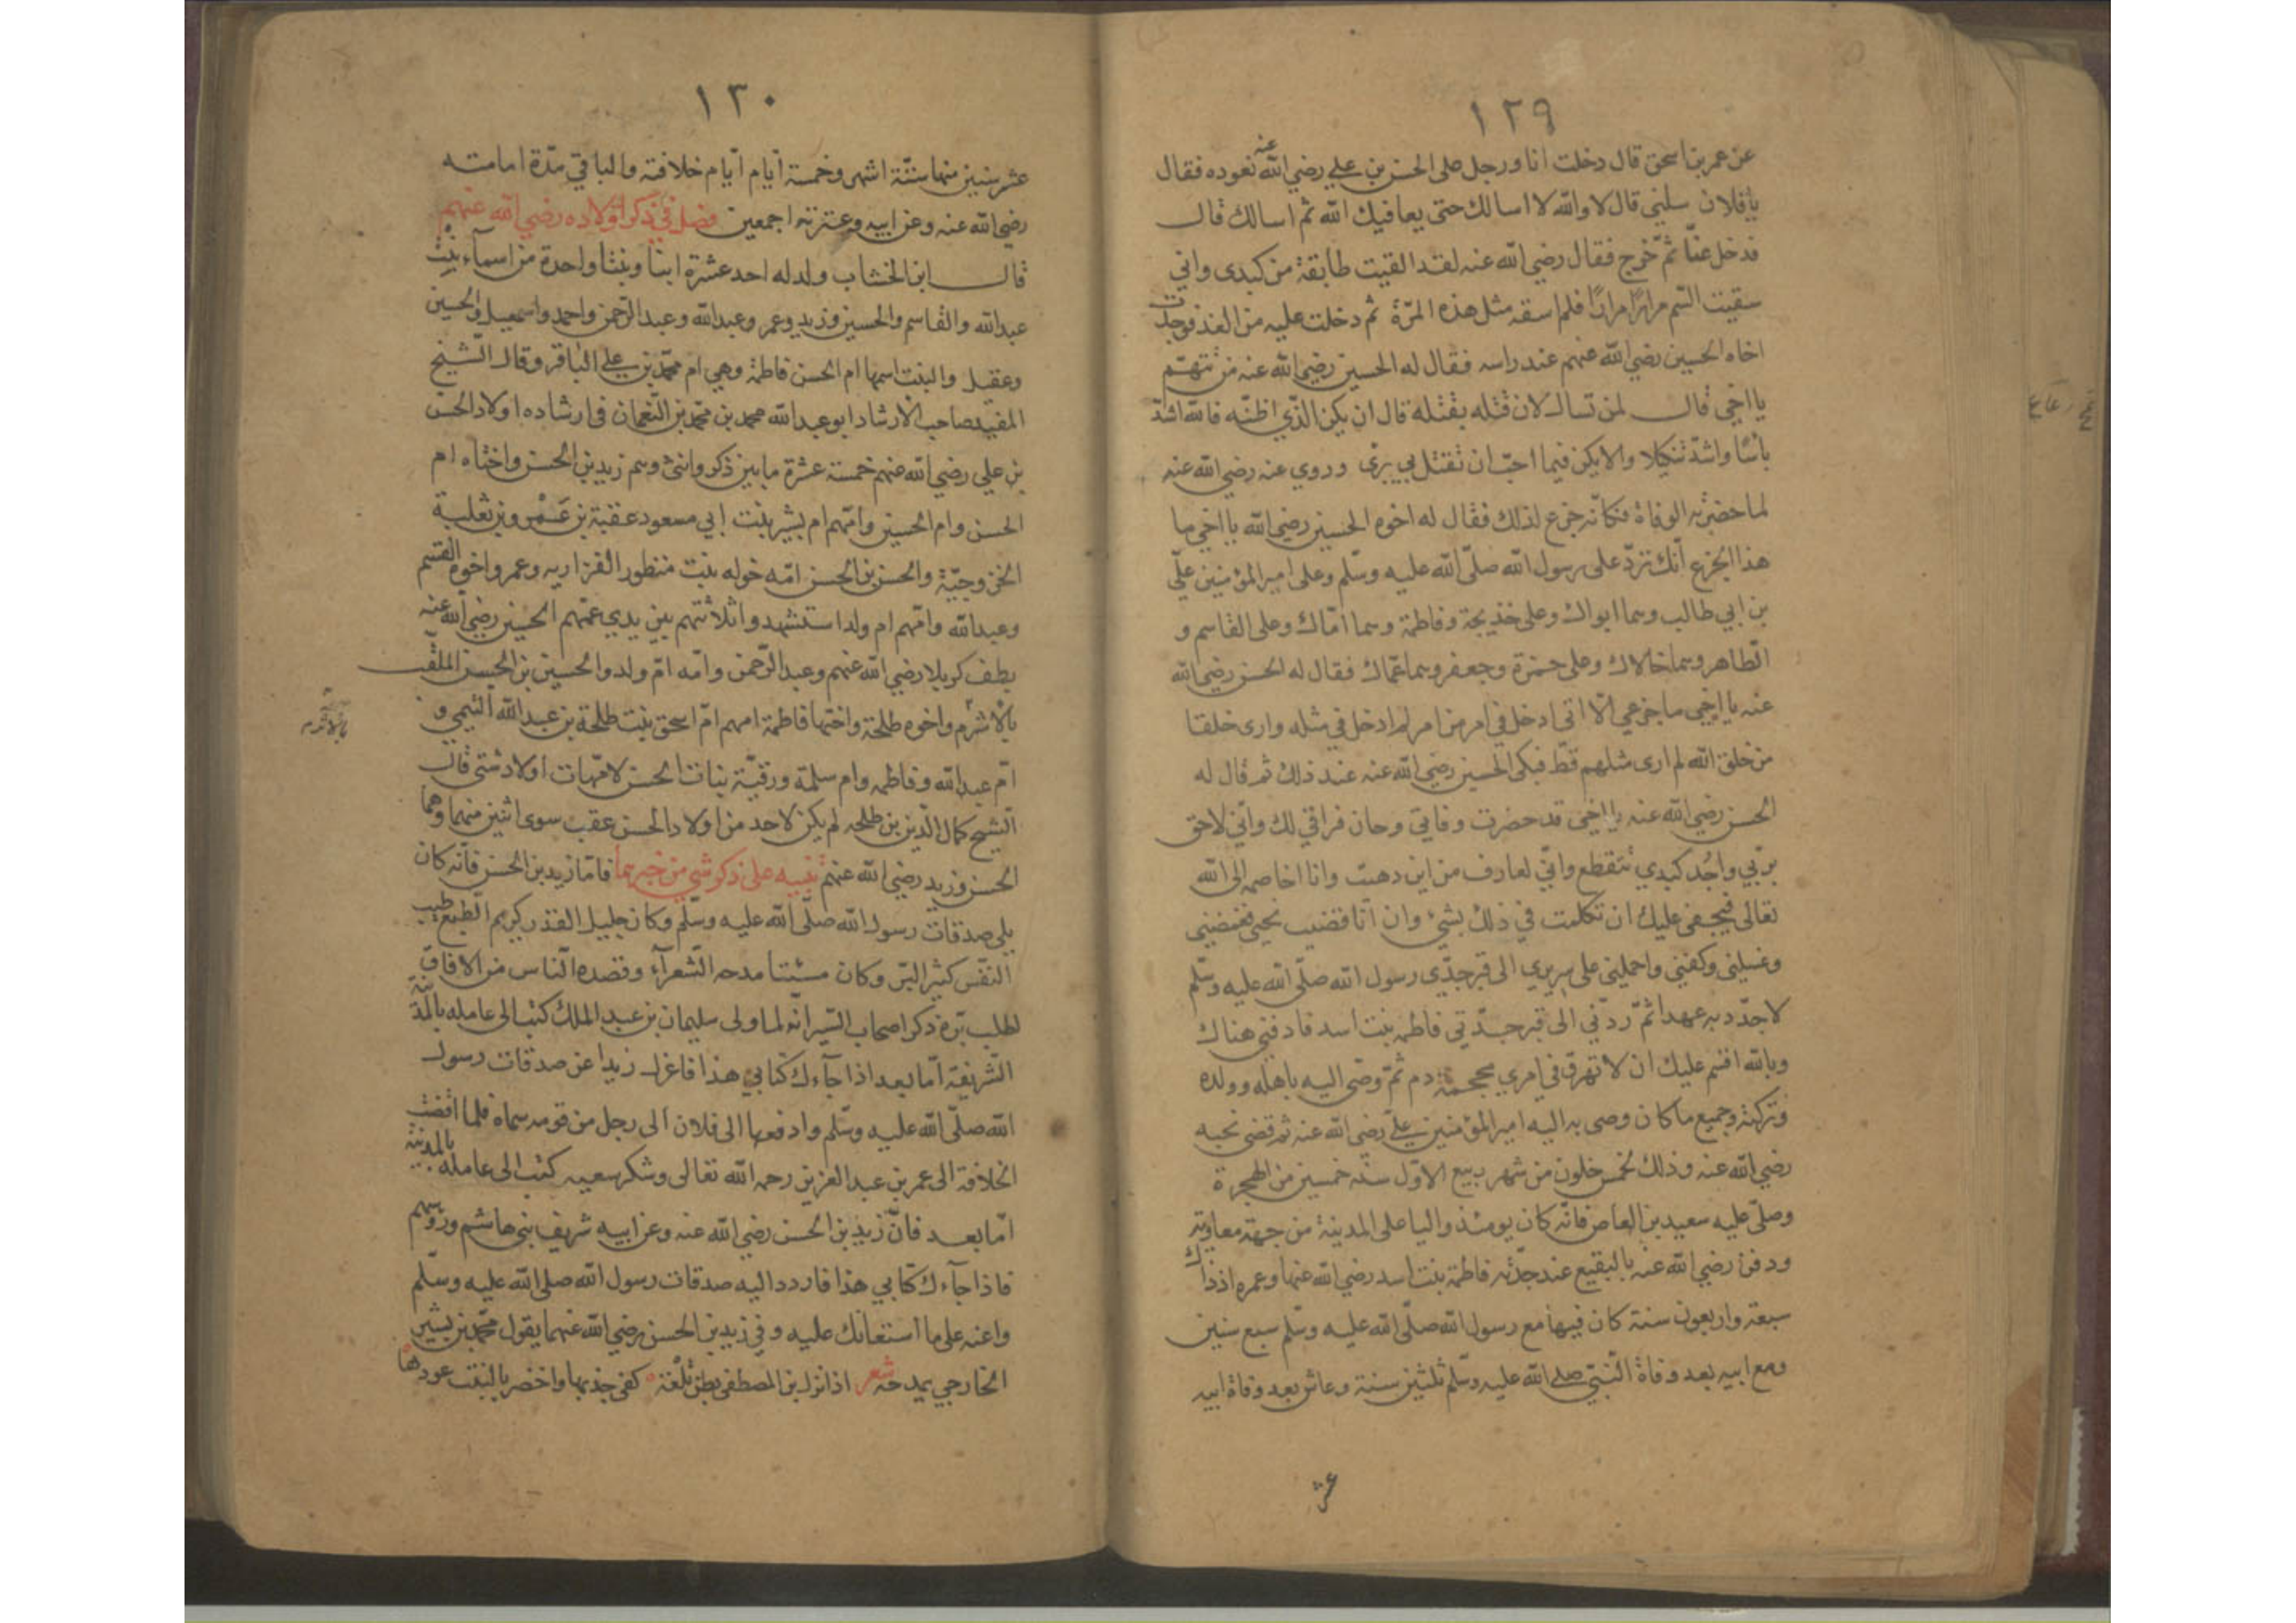 ١٢٩
عن عمر بن اسحق قال دخلت انا ورجل على الحسن بن علي رضي الله عنه نعوده فقال
يا فلان سلني قال لا والله لا اسالك حتى يعافيك الله ثم اسالك قال
فدخل عنّا ثمّ خرج فقال رضي الله عنه لقد القيت طابقة من كبدي واني
سقيت السّم مرارًا مرارًا فلم اسقه مثل هذه المرّة ثم دخلت عليه من الغد فوجدت
اخاه الحسين رضي الله عنهم عند راسه فقال له الحسين رضي الله عنه من تتهم
يا اخي قال لمن تسال لان قتله بقتله قال ان يكن الذي اظنّه فالله اشدّ
باسًا واشدّ تنكيلا والا يكن فما احبّ ان تقتل بي بري وروي عنه رضي الله عنه
لما حضرته الوفاة فكانّه جزع لذلك فقال له اخوه الحسين رضي الله يا اخي ما
هذا الجزع انّك تردّ على رسول الله صلّى الله عليه وسلّم وعلى امير المؤمنين عليّ
بن ابي طالب وهما ابواك وعلى خذيجة وفاطمة وهما امّاك وعلى القاسم و
الطاهر وهما خالاك وعلى حمزة وجعفر وهما عمّاك فقال له الحسن رضي الله
عنه يا اخي ما جزعي الّا انّي ادخل في امر من امر لم ادخل في مثله وارى خلقا
من خلق الله لم ارى مثلهم قطّ فبكى الحسين رضي الله عنه عند ذلك ثم قال له
الحسن رضي الله عنه يا اخي قد حضرت وفاتي وحان فراقي لك وانّي لاحق
بربّي واجد كبدي تتقطع وانّي لعارف من اين دهيت وانا اخاصمه الى الله
تعالى فبحقي عليك ان تكلمت في ذلك بشئ وان انا قضيت نحبي فغمضني
وغسلني وكفنني واحملني على سريري الى قبر جدّي رسول الله صلّى الله عليه وسلّم
لاجدّد به عهدا ثمّ ردّني الى قبر جدّتي فاطمه بنت اسد فادفني هناك
وبالله اقسم عليك ان لا تهرق في امري محجمة دم ثمّ وصّى اليه باهله وولده
وتركته وجميع ما كان وصى به اليه امير المؤمنين عليّ رضي الله عنه ثم قضى نحبه
رضي الله عنه وذلك لخمس خلون من شهر ربيع الاوّل سنة خمسين من الهجرة
وصلّى عليه سعيد بن العاص فانّه كان يومئذ واليا على المدينة من جهة معاوية
ودفن رضي الله عنه بالبقيع عند جدّته فاطمة بنت اسد رضي الله عنها وعمره اذ ذاك
سبعة واربعون سنة كان فيها مع رسول الله صلّى الله عليه وسلّم سبع سنين
ومع ابيه بعد وفاة النّبيّ صلى الله عليه وسلّم ثلثين سنة وعاش بعد وفاة ابيه
عشر
١٣٠
عشر سنين منها ستّة اشهر وخمسة ايّام ايّام خلافته والباقي مدّة امامته
رضي الله عنه وعن ابيه وعترته اجمعين فصل في ذكر اولاده رضي الله عنهم
قال ابن الخشاب ولد له احد عشرة ابنا وبنتا واحدة من اسمآء بنت
عبد الله والقاسم والحسين وزيد وعمر وعبد الله وعبد الرّحمن واحمد واسمعيل والحسين
وعقيل والبنت اسمها ام الحسن فاطمة وهي ام محمّد بن علي الباقر وقال الشيخ
المفيد صاحب الارشاد ابو عبد الله محمد بن محمّد بن النّعمان في ارشاده اولاد الحسن
بن علي رضي الله عنهم خمسة عشرة ما بين ذكر وانثى وهم زيد بن الحسن واختاه ام
الحسن وام الحسين وامّهم ام بشير بنت ابي مسعود عقبة بن عَمْرو بن ثعلبة
الخزوجيّة والحسن بن الحسن امّه خوله بنت منظور الفزاريه وعمر واخوه القسم
وعبد الله وامّهم ام ولد استشهدوا ثلاثتهم بين يدي عمّهم الحسين رضي الله عنه
بطف كربلا رضي الله عنهم وعبد الرّحمن وامّه امّ ولد والحسين بن الحسن الملقّب
بالاثرم واخوه طلحة واختها فاطمة امهم امّ اسحق بنت طلحة بن عبد الله التيمي و
امّ عبد الله وفاطمه وام سلمة ورقيّة بنات الحسن لامّهات اولاد شتى قال
الشيخ كمال الدّين بن طلحه لم يكن لاحد من اولاد الحسن عقب سوى اثنين منهما وهما
الحسن وزيد رضي الله عنهم تنبيه على ذكر شئ من خبرهما فامّا زيد بن الحسن فانّه كان
يلي صدقات رسول الله صلّى الله عليه وسلّم وكان جليل القدر كريم الطبع طيب
النّفس كثير البرّ وكان مسنّا مدحه الشّعرآء وقصده النّاس من الافاق
لطلب برّه ذكر اصحاب السّير انّه لما ولى سليمان بن عبد الملك كتب الى عامله بالمدينة
الشّريفة امّا بعد اذا جآءك كتابي هذا فاعزل زيدا عن صدقات رسول
الله صلّى الله عليه وسلّم وادفعها الى فلان الى رجل من قومه سماه فلما افضت
الخلافة الى عمر بن عبد العزيز رحمه الله تعالى وشكر سعيه كتب الى عامله بالمدينة
امّا بعد فانّ زيد بن الحسن رضي الله عنه وعن ابيه شريف بني هاشم وذو سهم
فاذا جآءك كتابي هذا فاردد اليه صدقات رسول الله صلى الله عليه وسلّم
واعنه على ما استعانك عليه وفي زيد بن الحسن رضي الله عنهما يقول محمّد بن بشير
الخارجي يمدحه شعر اذا نزل ابن المصطفى بطن تلعة كفى جذبها واخضر بالنبت عودها